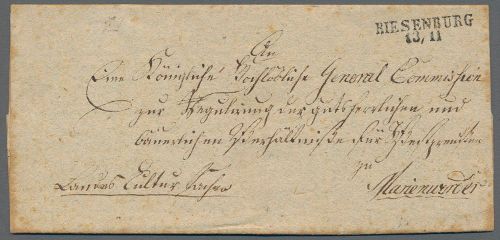 RIESENBURG
13/11
An
Eine Königliche Hochlöbliche General Commission
zur Regulirung der gutsherrlichen und
bäuerlichen Verhältniße für Westpreußen
zu
Marienwerder
Landes Cultur Sache